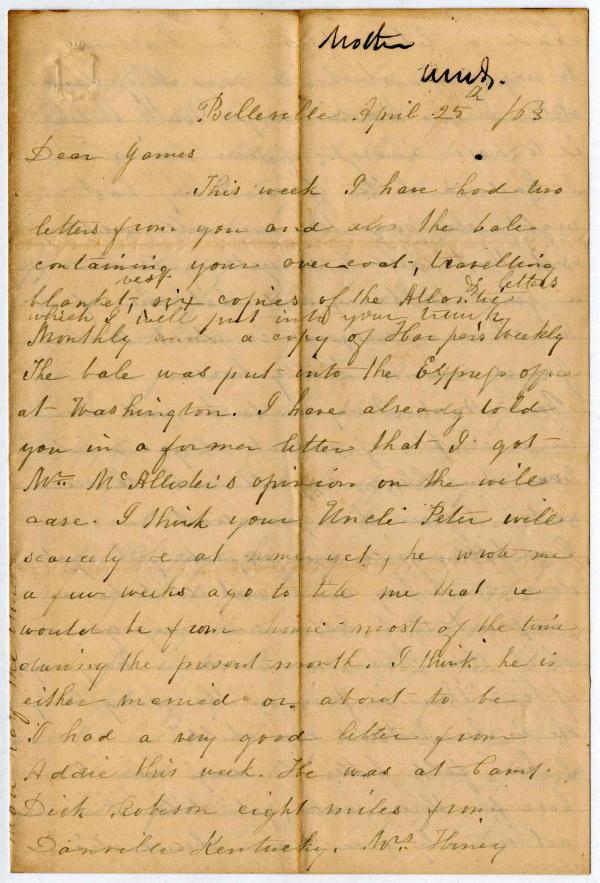 Mother
Belleville April 25th /63
Dear James
This week I have had two
letters from you and also the bale
containing your overcoat, travelling
blanket, vest six copies of the Atlantic
& letters
which I will put into your trunk
Monthly and a copy of Harper's Weekly
The bale was put into the Express office
at Washington. I have already told
you in a former letter that I got
Mr McAllister's opinion on the will
case. I think your Uncle Peter will
scarcely be at home yet, he wrote me
a few weeks ago to tell me that he
would be from home most of the time
during the present month. I think he is
either married or about to be
I had a very good letter from
Addie this week. He was at Camp
Dick Robeson eight miles from
Danville Kentucky. Mrs